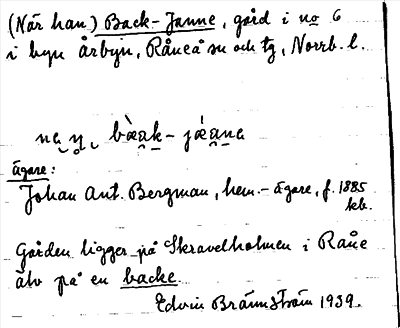 (När han) Back-Janne, gård i no 6
i byn Årbyn, Råneå sn och tg, Norrb. l.
bàak-jáana
ägare:
Johan Ant. Bergman, hem.-ägare, f. 1885
kb.
Gården ligger på Skravelholmen i Råne
älv på en backe
Edvin Brännström 1939.